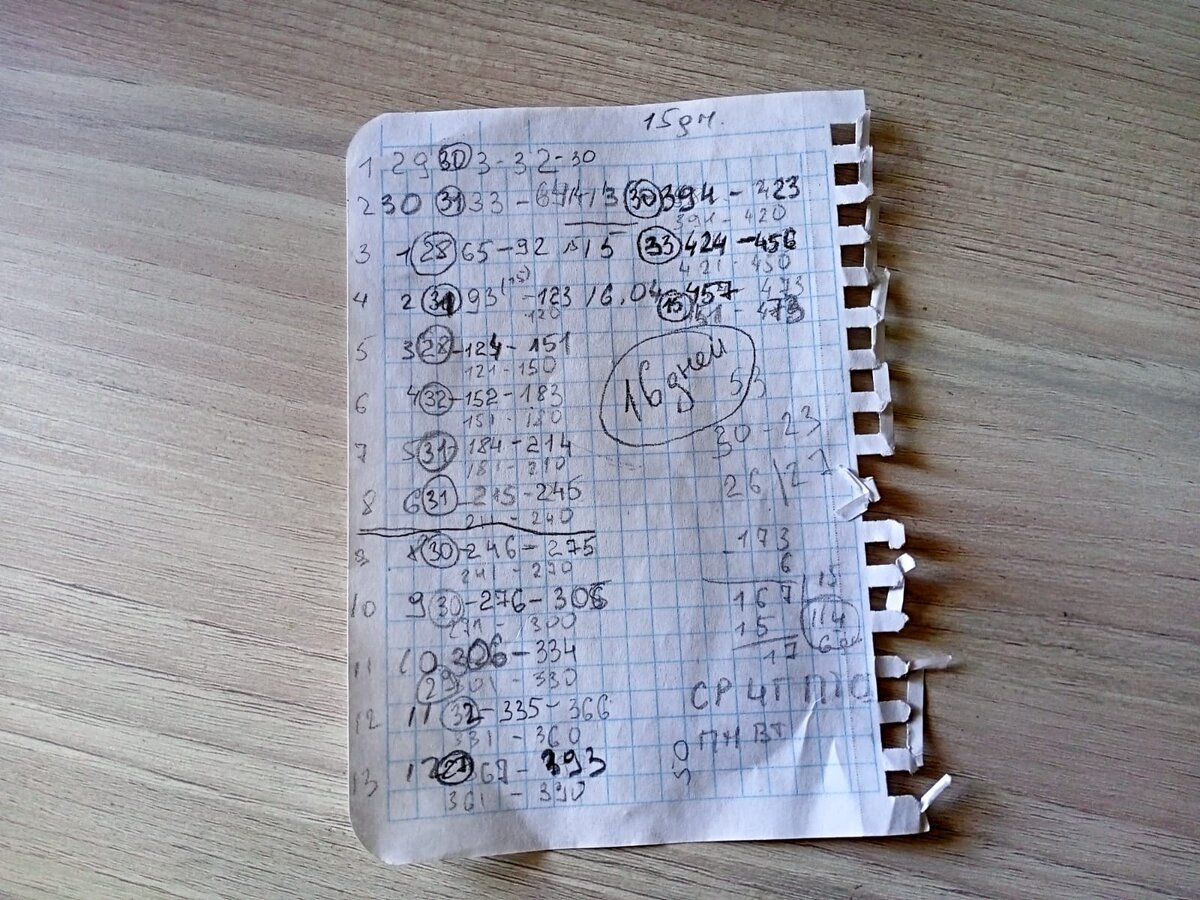 15 дн.
1 29 30 3-32-30
2 30 31 33-64
3 1 28 65-92
4 2 31 93 (15) -123
120
5 3 28-124-151
121-150
6 4 32-152-183
151-180
7 5 31-184-214
181-210
8 6 31 215-245
211-240
9 30-246-275
241-270
10 9 30-276-305
271-300
11 10 306-334
29 301-330
12 11 32-335-366
331-360
13 12 27 367-393
361-390
14 13 30 394-423
391-420
15 33 424-456
421-450
16.04 457-473
15 451-473
16 дней
53
30-23
26/27
-173
6
167 15
15 114
17
СР ЧТ ПТ С
ПН ВТ